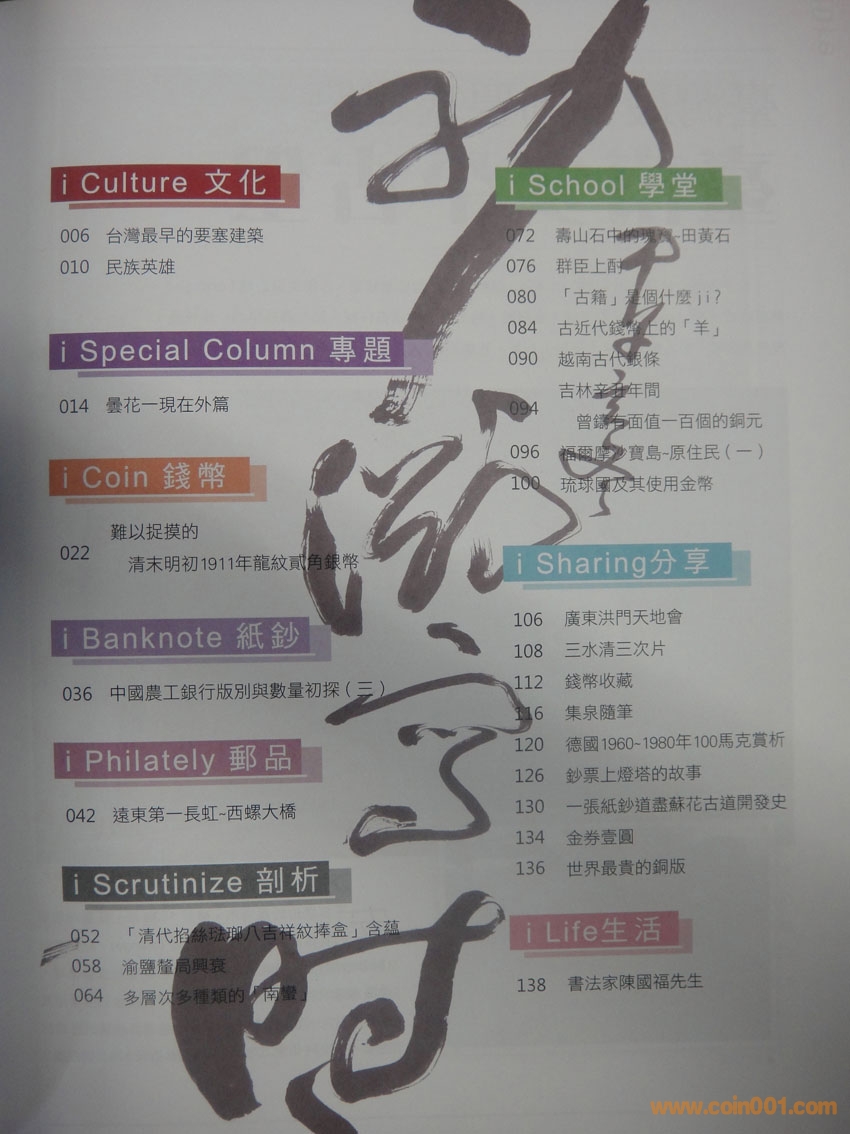 i Culture 文化
006 台灣最早的要塞建築
010 民族英雄
i Special Column 專題
014 曇花一現在外篇
i Coin 錢幣
022 難以捉摸的
清末明初1911年龍紋貳角銀幣
i Banknote 紙鈔
036 中國農工銀行版別與數量初探(三)
i Philately 郵品
042 遠東第一長虹~西螺大橋
i Scrutinize 剖析
052 「清代掐絲琺瑯八吉祥紋捧盒」含蘊
058 渝鹽釐局興衰
064 多層次多種類的「南蠻」
i School 學堂
072 壽山石中的瑰寶~田黃石
076 群臣上酎
080 「古籍」是個什麼ji?
084 古近代錢幣上的「羊」
090 越南古代銀條
094 吉林辛丑年間
曾鑄有面值一百個的銅元
096 福爾摩沙寶島~原住民(一)
100 琉球國及其使用金幣
i Sharing分享
106 廣東洪門天地會
108 三水清三次片
112 錢幣收藏
116 集泉隨筆
120 德國1960~1980年100馬克賞析
126 鈔票上燈塔的故事
130 一張紙鈔道盡蘇花古道開發史
134 金券壹圓
136 世界最貴的銅版
i Life生活
138 書法家陳國福先生
www.coin001.com